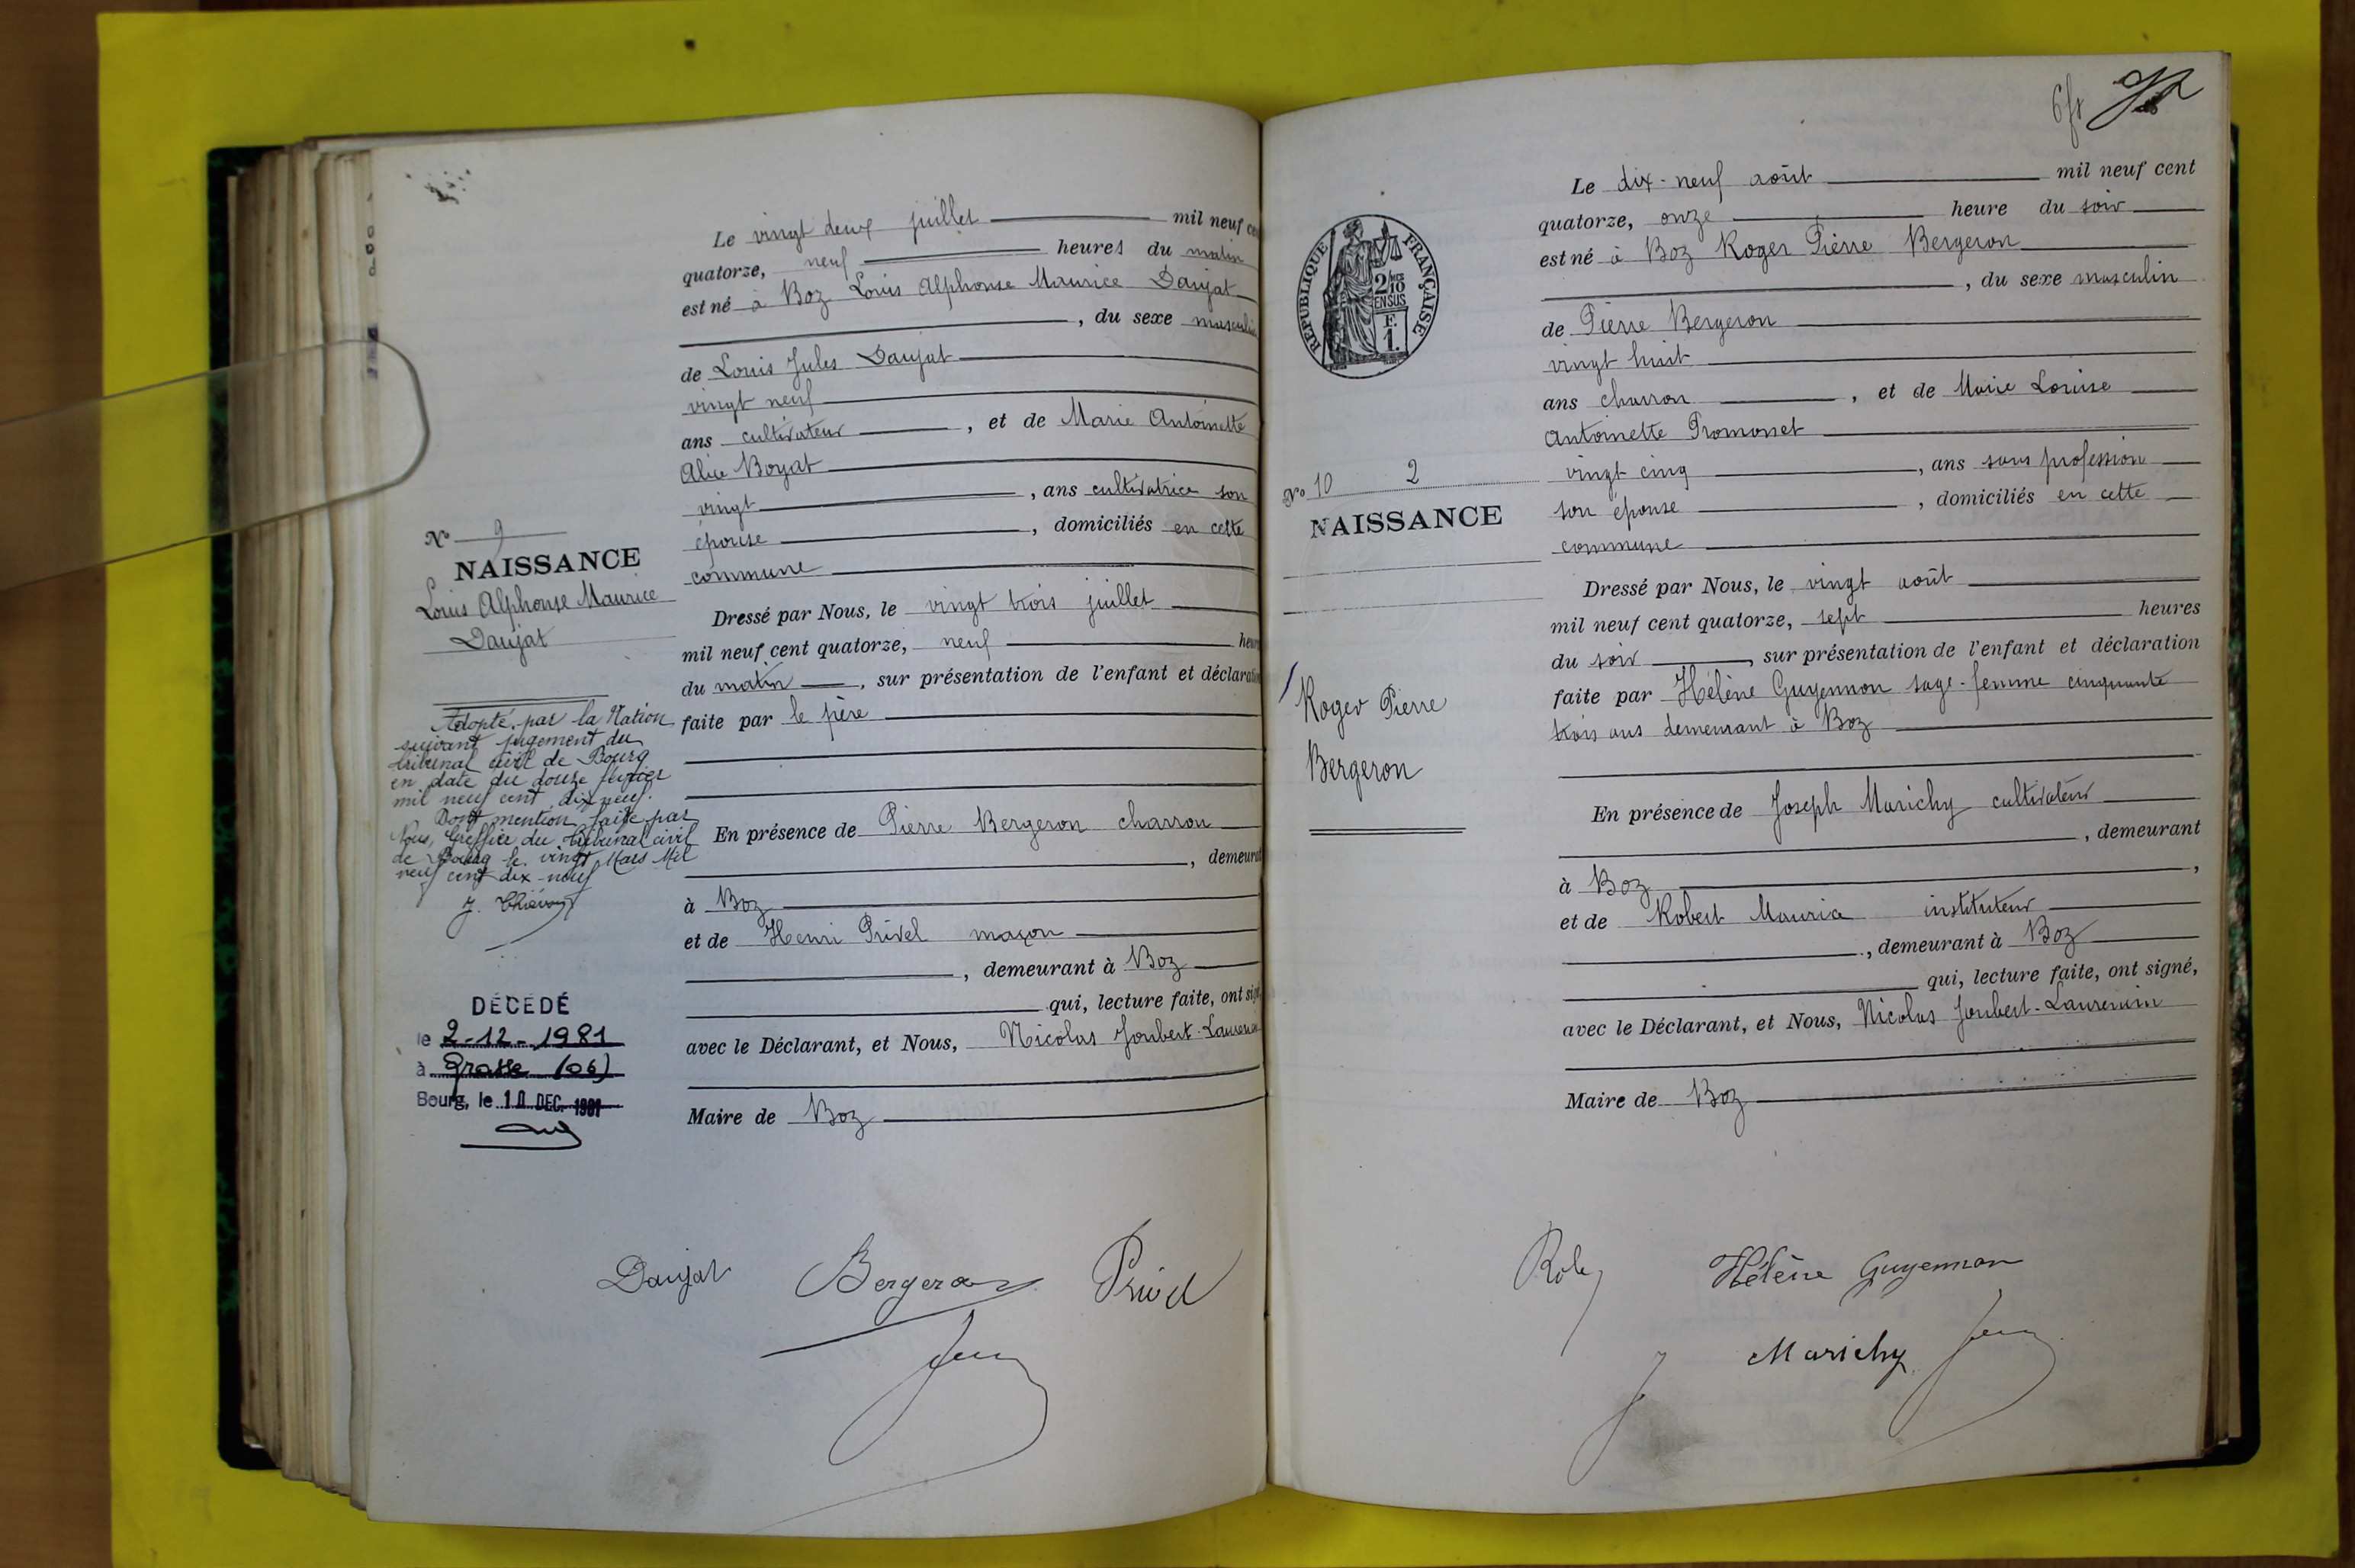 Le vingt deux juillet mil neuf ce
quatorze, neuf heures du matin
est né à Boz Louis Alphonse Maurice Daujat
, du sexe masculin
de Louis Jules Daujat
vingt neuf
ans cultivateur , et de Marie Antoinette
Alice Boyat
vingt , ans cultivatrice son
épouse , domiciliés en cette
commune
Dressé par Nous, le vingt trois juillet
mil neuf cent quatorze, neuf heur
du matin , sur présentation de l'enfant et déclaration
faite par le père
En présence de Pierre Bergeron charron
, demeurat
à Boz
et de Henri Privel maçon
, demeurant à Boz
qui, lecture faite, ont signé,
avec le Déclarant, et Nous, Nicolas Joubert-Laurencin
Maire de Boz
N° 9
NAISSANCE
Louis Alphonse Maurice
Daujat
Adopté par la Nation
suivant jugement du
tribunal civil de Bourg
en date du douze février
mil neuf cent dix neuf.
Dont mention faite par
Nous, Greffier du Tribunal civil
de Bourg le vingt Mars Mil
neuf cent dix-neuf
DÉCÉDÉ
le 2-12-1981
à Grasse (06)
Bourg, le 10 DEC. 1981
Daujat Bergeron Privel
Le dix-neuf août mil neuf cent
quatorze, onze heure du soir
est né à Boz Roger Pierre Bergeron
, du sexe masculin
de Pierre Bergeron
vingt huit
ans charron , et de Marie Louise
Antoinette Promonet
vingt cinq , ans sans profession
son épouse , domiciliés en cette
commune
Dressé par Nous, le vingt août
mil neuf cent quatorze, sept heures
du soir , sur présentation de l'enfant et déclaration
faite par Hélène Guyennon sage-femme cinquante
trois ans demeurant à Boz
En présence de Joseph Marichy cultivateur
, demeurant
à Boz ,
et de Robert Maurice instituteur
, demeurant à Boz
qui, lecture faite, ont signé,
avec le Déclarant, et Nous, Nicolas Joubert-Laurencin
Maire de Boz
RÉPUBLIQUE FRANÇAISE
2/10
EN SUS
F.
1.
N° 10 2
NAISSANCE
Roger Pierre
Bergeron
Hélène Guyennon
Marichy